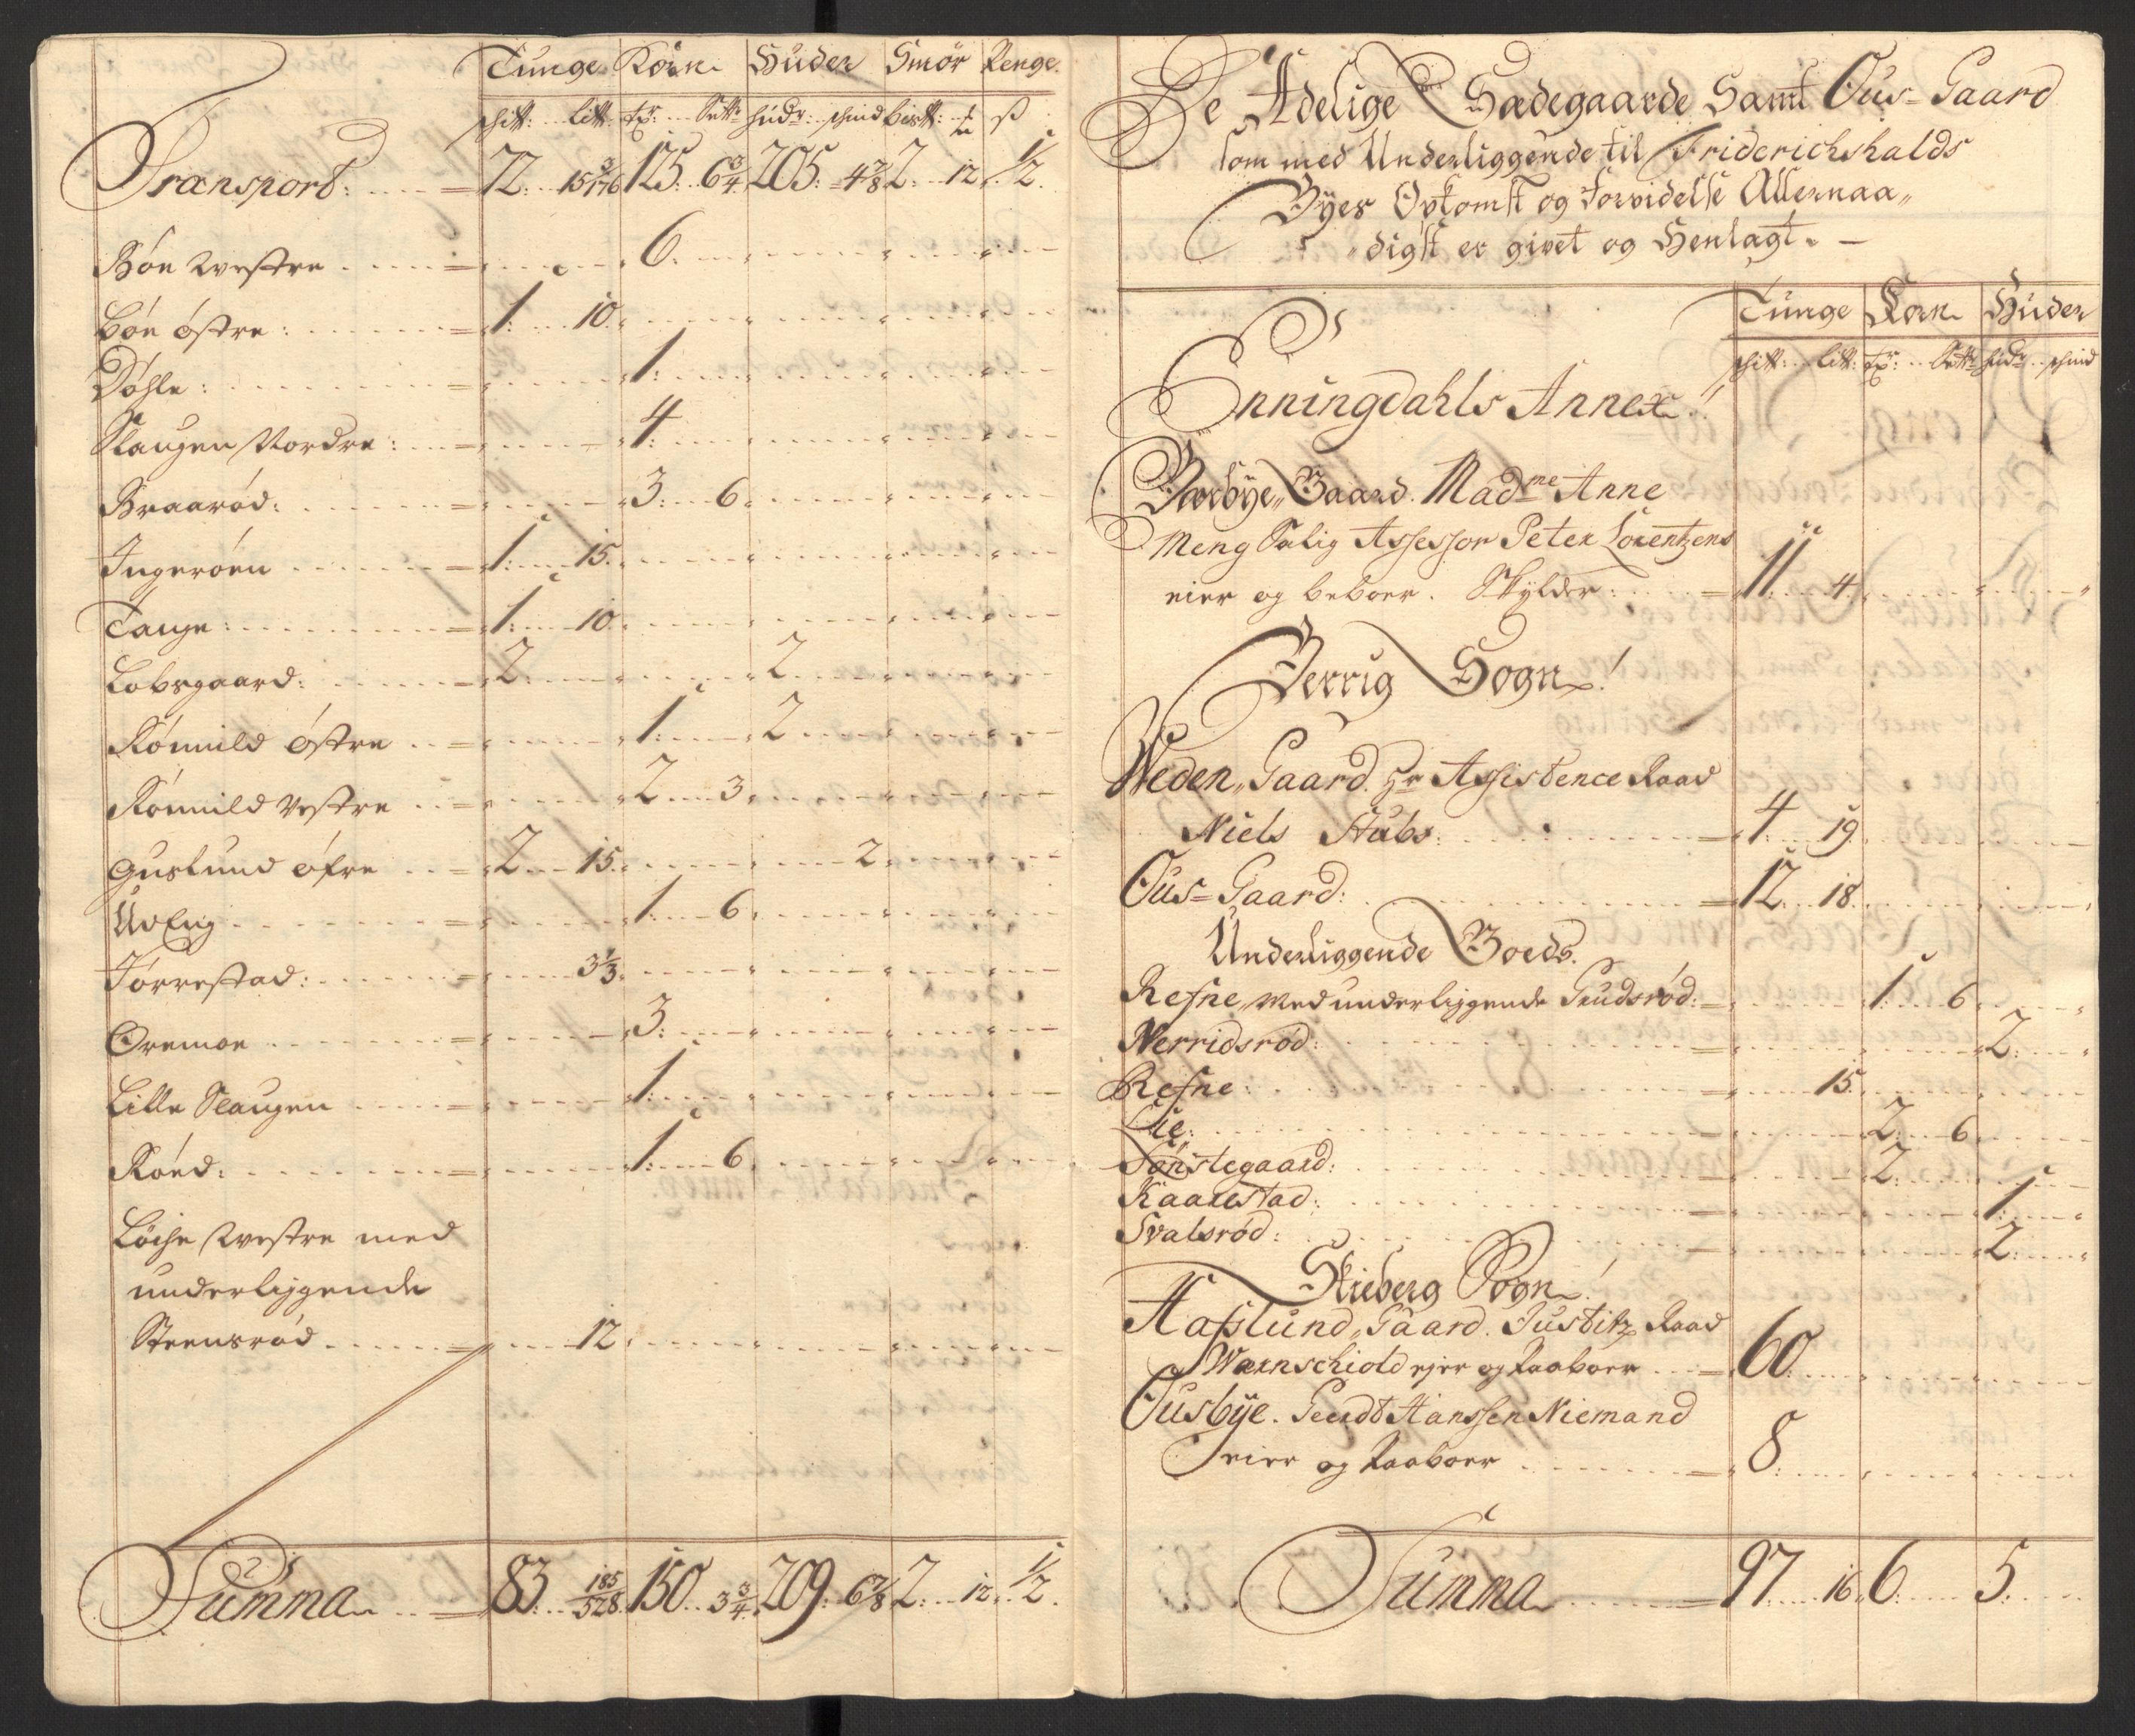 Tunge Korn Huder Smör Penge
schitt: litt: tr: Sett: hud: schind bist: ß
Transport: 72. 15 3/176 125. 6 3/4 205. 4 7/8 2. 12. 1/2.
Bön Westre 6.
Bön östre: 1. 10.
Döhle: 1.
Slaugen Nordre: 4.
Braaröd: 3. 6.
Ingeröen 1. 15.
Tange: 1. 10.
Labsgaard: 2. 2.
Kömmild östre 1. 2.
Kömmild Vestre 2. 3.
Guslund öfre 2. 15. 2.
Udeng 1. 6.
Torrestad: 3 1/3.
Oremoe 3.
Lille Slaugen 1.
Köed: 1. 6.
Löche Westre med
underliggende
Steensröd 12.
Summa 83. 185/528 150. 3 3/4 209. 6 7/8 2. 12. 1/2.
De Adelige Sædegaarde Samt Ous-Gaard
som med Underliggende til Friderichshalds
Byes Opkomst og Forvidelse Allernaa„
„digst er givet og Henlagt.
Tunge Korn Huder
schitt: litt: tr: Sett: hud: schind
Enningdahls Annex
Bærbye„Gaard. Madme Anne
Meng Salig Assessor Peter Lorentzens
eier og beboer. Skylder: 11. 4.
Berrig Sogn
Weden„Gaard. Hr Assistence Raad
Niels Stubs: 4. 19.
Ous-Gaard: 12. 18.
Underliggende Goeds.
Refne„ med underliggende Gudsröd: 1. 6.
Nerridsröd: 2.
Refne: 15.
Lie: 2. 6.
Tonstegaard: 2.
Kaarestad: 1.
Svalsröd: 2.
Skieberg Sogn
Hafslund„Gaard. Justitz Raad
Wernschiold ejer og Paaboer 60.
Ousbye. Geerdt Hanssen Niemand
eier og Paaboer 8.
Summa 97. 16. 6. 5.